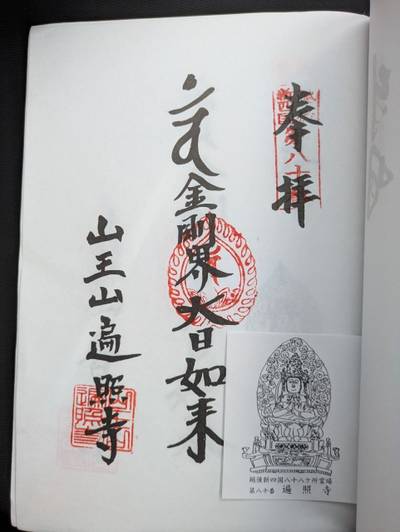 奉拝
金剛界大日如来
山王山遍照寺
越後新四国八十八ケ所霊場
第八十番 遍照寺